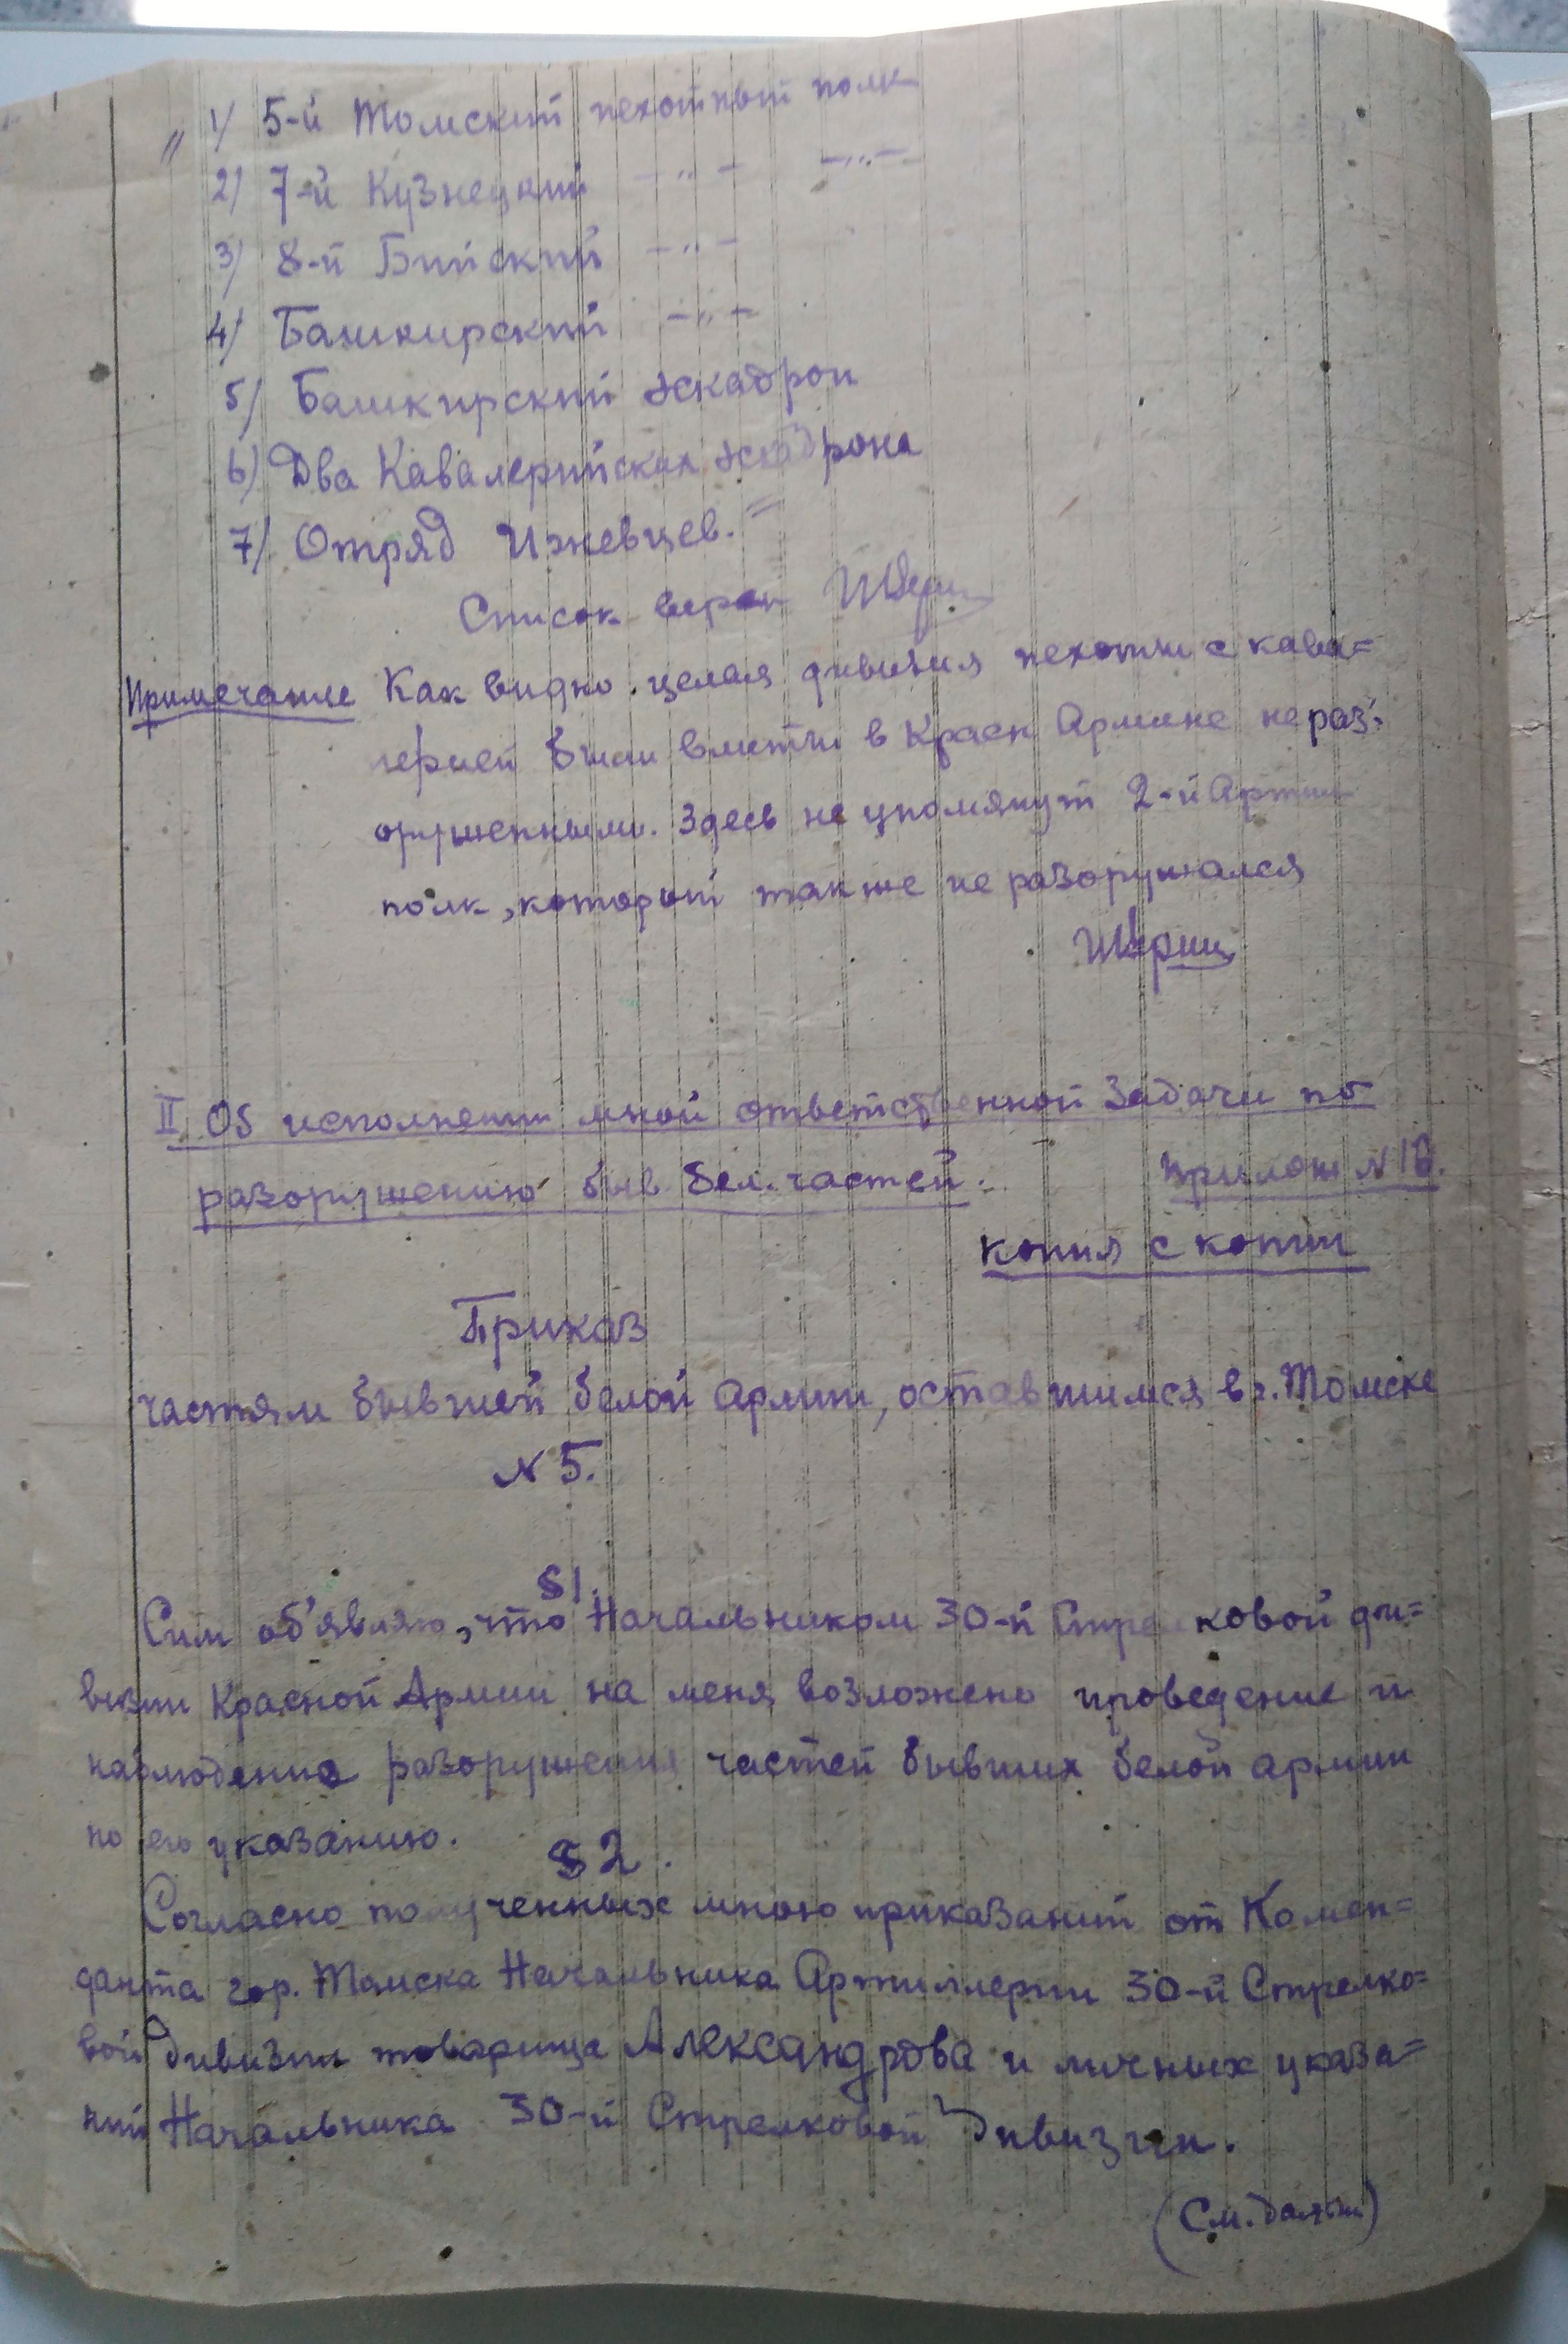 „ 1) 5-й Томский пехотный полк
2) 7-й Кузнецкий —„— —„—
3) 8-й Бийский —„—
4) Башкирский —„—
5) Башкирский эскадрон
6) Два Кавалерийских эскадрона
7) Отряд Ижевцев."
Список верен
Примечание Как видно целая дивизия пехоты с кава=
лерией были влиты в Красн Армию не раз=
оруженными. Здесь не упомянут 2-й Артил
полк, который также не разоружался
II Об исполнении мной ответственной задачи по
разоружению быв бел. частей. Прилож N 18.
копия с копии
Приказ
частям бывшей белой армии, оставшимся в г. Томске
N 5.
§ 1.
Сим об'являю, что Начальником 30-й Стрелковой ди=
визии Красной Армии на меня возложено проведение и
наблюдение разоружения частей бывших белой армии
по его указанию.
§ 2.
Согласно полученных мною приказаний от Комен=
данта гор. Томска Начальника Артиллерии 30-й Стрелко=
вой дивизии товарища Александрова и личных указа=
ний Начальника 30-й Стрелковой Дивизии.
(См. дальш)